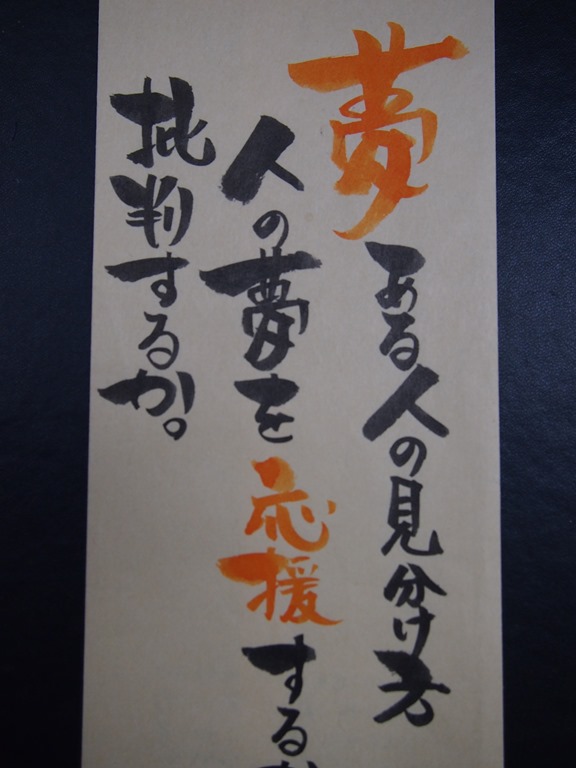 夢ある人の見分け方
人の夢を応援する
批判するか。